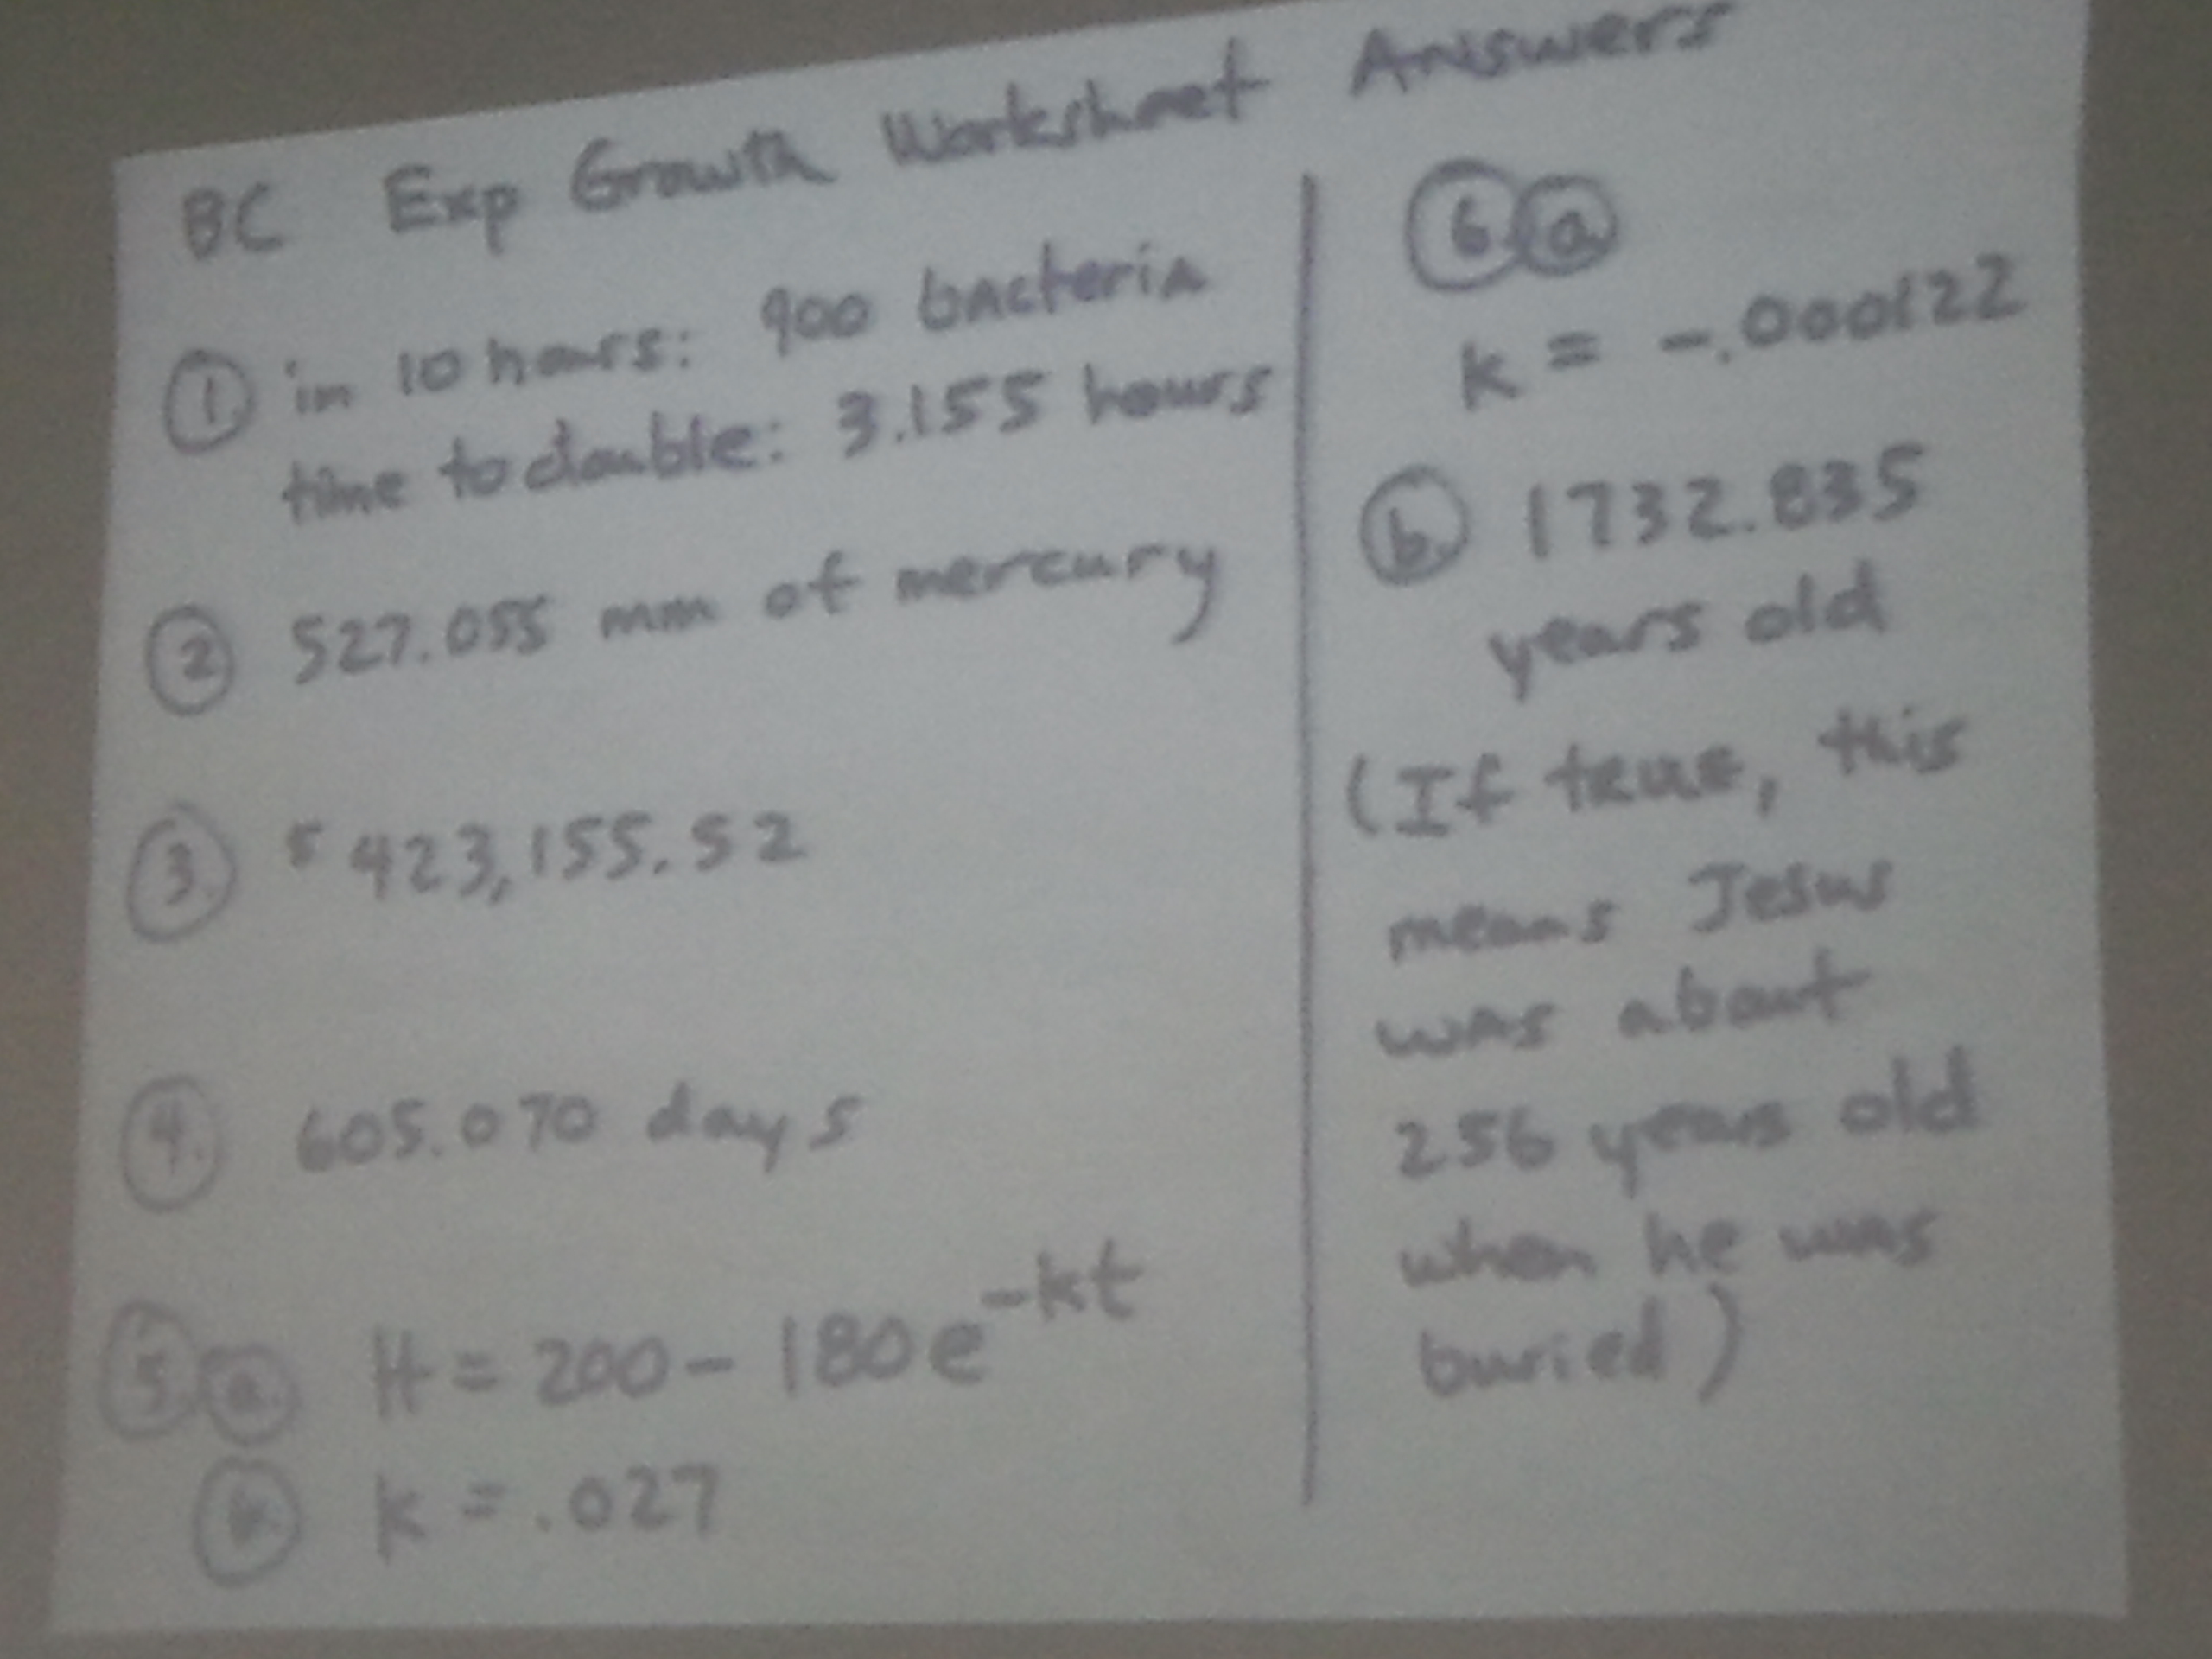 BC Exp Growth Worksheet Answers
1. in 10 hours: 900 bacteria
time to double: 3.155 hours
2. 527.055 mm of mercury
3. $423,155.52
4. 605.070 days
5. a. H = 200 - 180e^-kt
b. k = .027
6. a
k = -.000122
b. 1732.835
years old
(If true, this
means Jesus
was about
256 years old
when he was
buried)